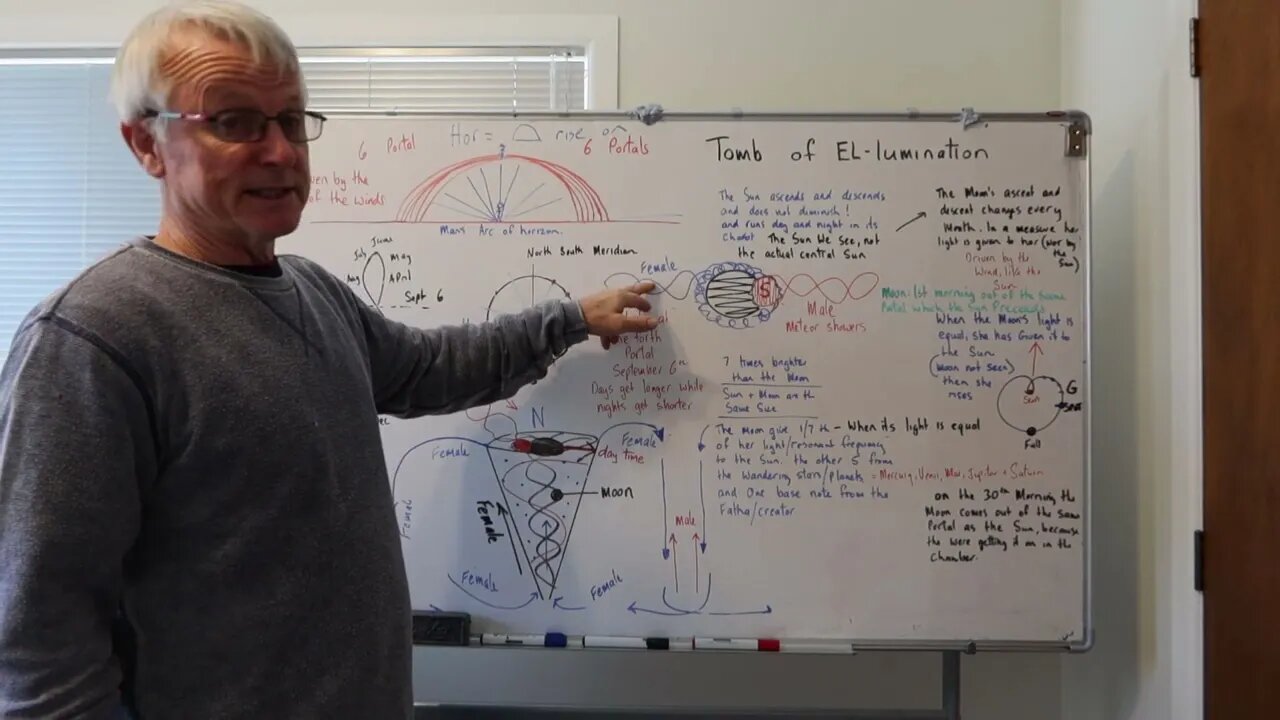 6 Portal
Hor = rise on
6 Portals
ven by the
of the winds
Mans Arc of horizon.
Tomb of EL-lumination
The Sun ascends and descends
and does not diminish!
and runs day and night in its
Chariot The Sun We See, not
the actual central Sun
The Moon's ascent and
descent changes every
Month. In a measure her
light is given to her (Nor by the Sun)
Driven by the
Wind, like the
Sun
Moon: 1st morning out of the same
Portal which the Sun Preceeds
When the Moon's light is
equal, she has Given it to
the Sun.
(Moon not seen)
then she
rises
G
Full
July
June
May
Aug
April
Sept 6
North South Meridian
Female
S
Male
Meteor showers
Portal
September 6th
Days get longer while
nights get shorter
7 times brighter
than the Moon
Sun + Moon are the
Same Size
The Moon give 1/7th - When its light is equal
of her light/resonant frequency
to the Sun. the other 5 from
the Wandering stars/planets = Mercury, Venus, Mar, Jupiter + Saturn
and One base note from the
Fatha/creator
on the 30th Morning the
Moon comes out of the same
Portal as the Sun, because
the were getting it on in the
chamber.
N
Female
Female
day time
Moon
Female
Female
Female
Female
Male